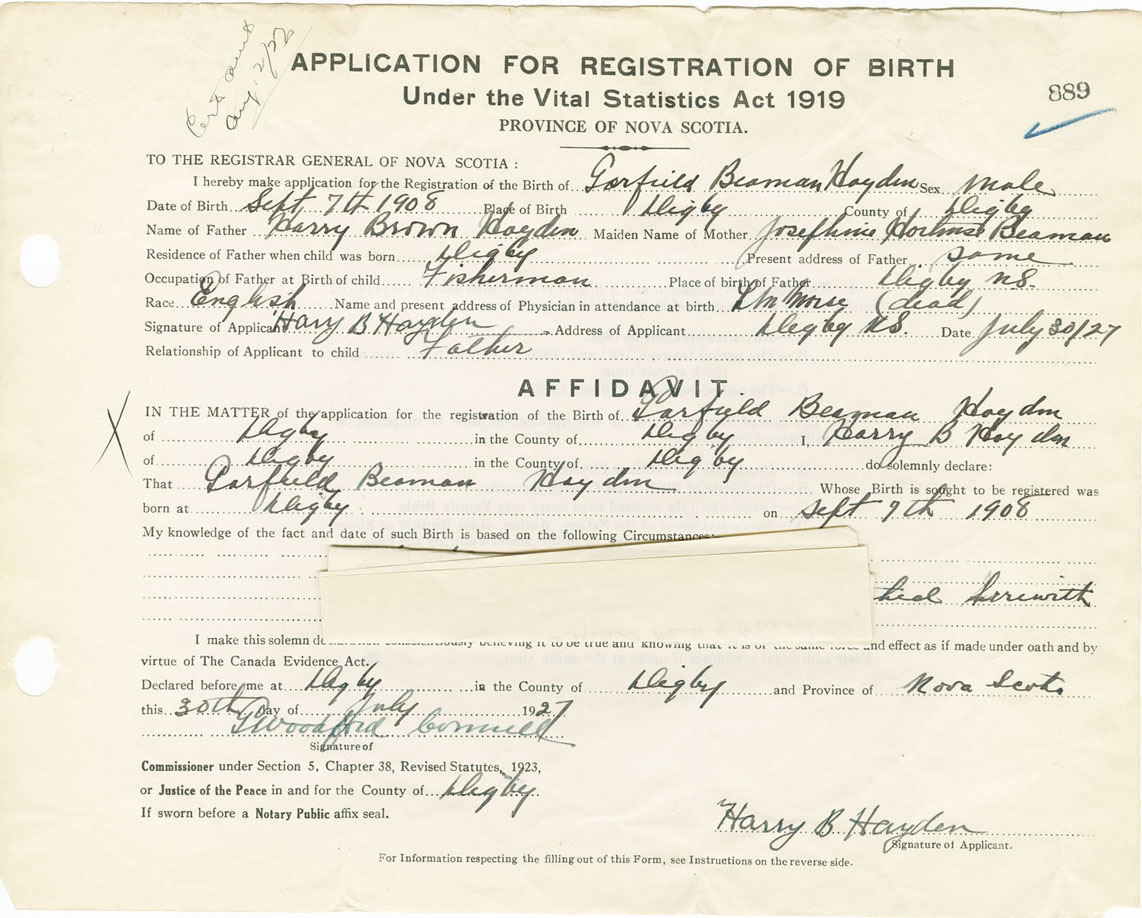 Cert
Aug. 2/
APPLICATION FOR REGISTRATION OF BIRTH
Under the Vital Statistics Act 1919
889
PROVINCE OF NOVA SCOTIA.
TO THE REGISTRAR GENERAL OF NOVA SCOTIA :
I hereby make application for the Registration of the Birth of Garfield Beaman Hayden Sex Male
Date of Birth Sept 7th 1908 Place of Birth Digby County of Digby
Name of Father Harry Brown Hayden Maiden Name of Mother Josephine Beaman
Residence of Father when child was born Digby Present address of Father Same
Occupation of Father at Birth of child Fisherman Place of birth of Father Digby N.S.
Race English Name and present address of Physician in attendance at birth Morse (dead)
Signature of Applicant Harry B Hayden Address of Applicant Digby N.S. Date July 30/27
Relationship of Applicant to child Father
AFFIDAVIT
X IN THE MATTER of the application for the registration of the Birth of Garfield Beaman Hayden
of Digby in the County of Digby I, Harry B Hayden
of Digby in the County of Digby do solemnly declare:
That Garfield Beaman Hayden Whose Birth is sought to be registered was
born at Digby on Sept 7th 1908
My knowledge of the fact and date of such Birth is based on the following Circumstances:
herewith
I make this solemn conscientiously believing it to be true and knowing that it is of the same force and effect as if made under oath and by
virtue of The Canada Evidence Act.
Declared before me at Digby in the County of Digby and Province of Nova Scotia
this 30th day of July 1927
Woodford
Signature of
Commissioner under Section 5, Chapter 38, Revised Statutes, 1923,
or Justice of the Peace in and for the County of Digby.
If sworn before a Notary Public affix seal.
Harry B Hayden
Signature of Applicant.
For Information respecting the filling out of this Form, see Instructions on the reverse side.